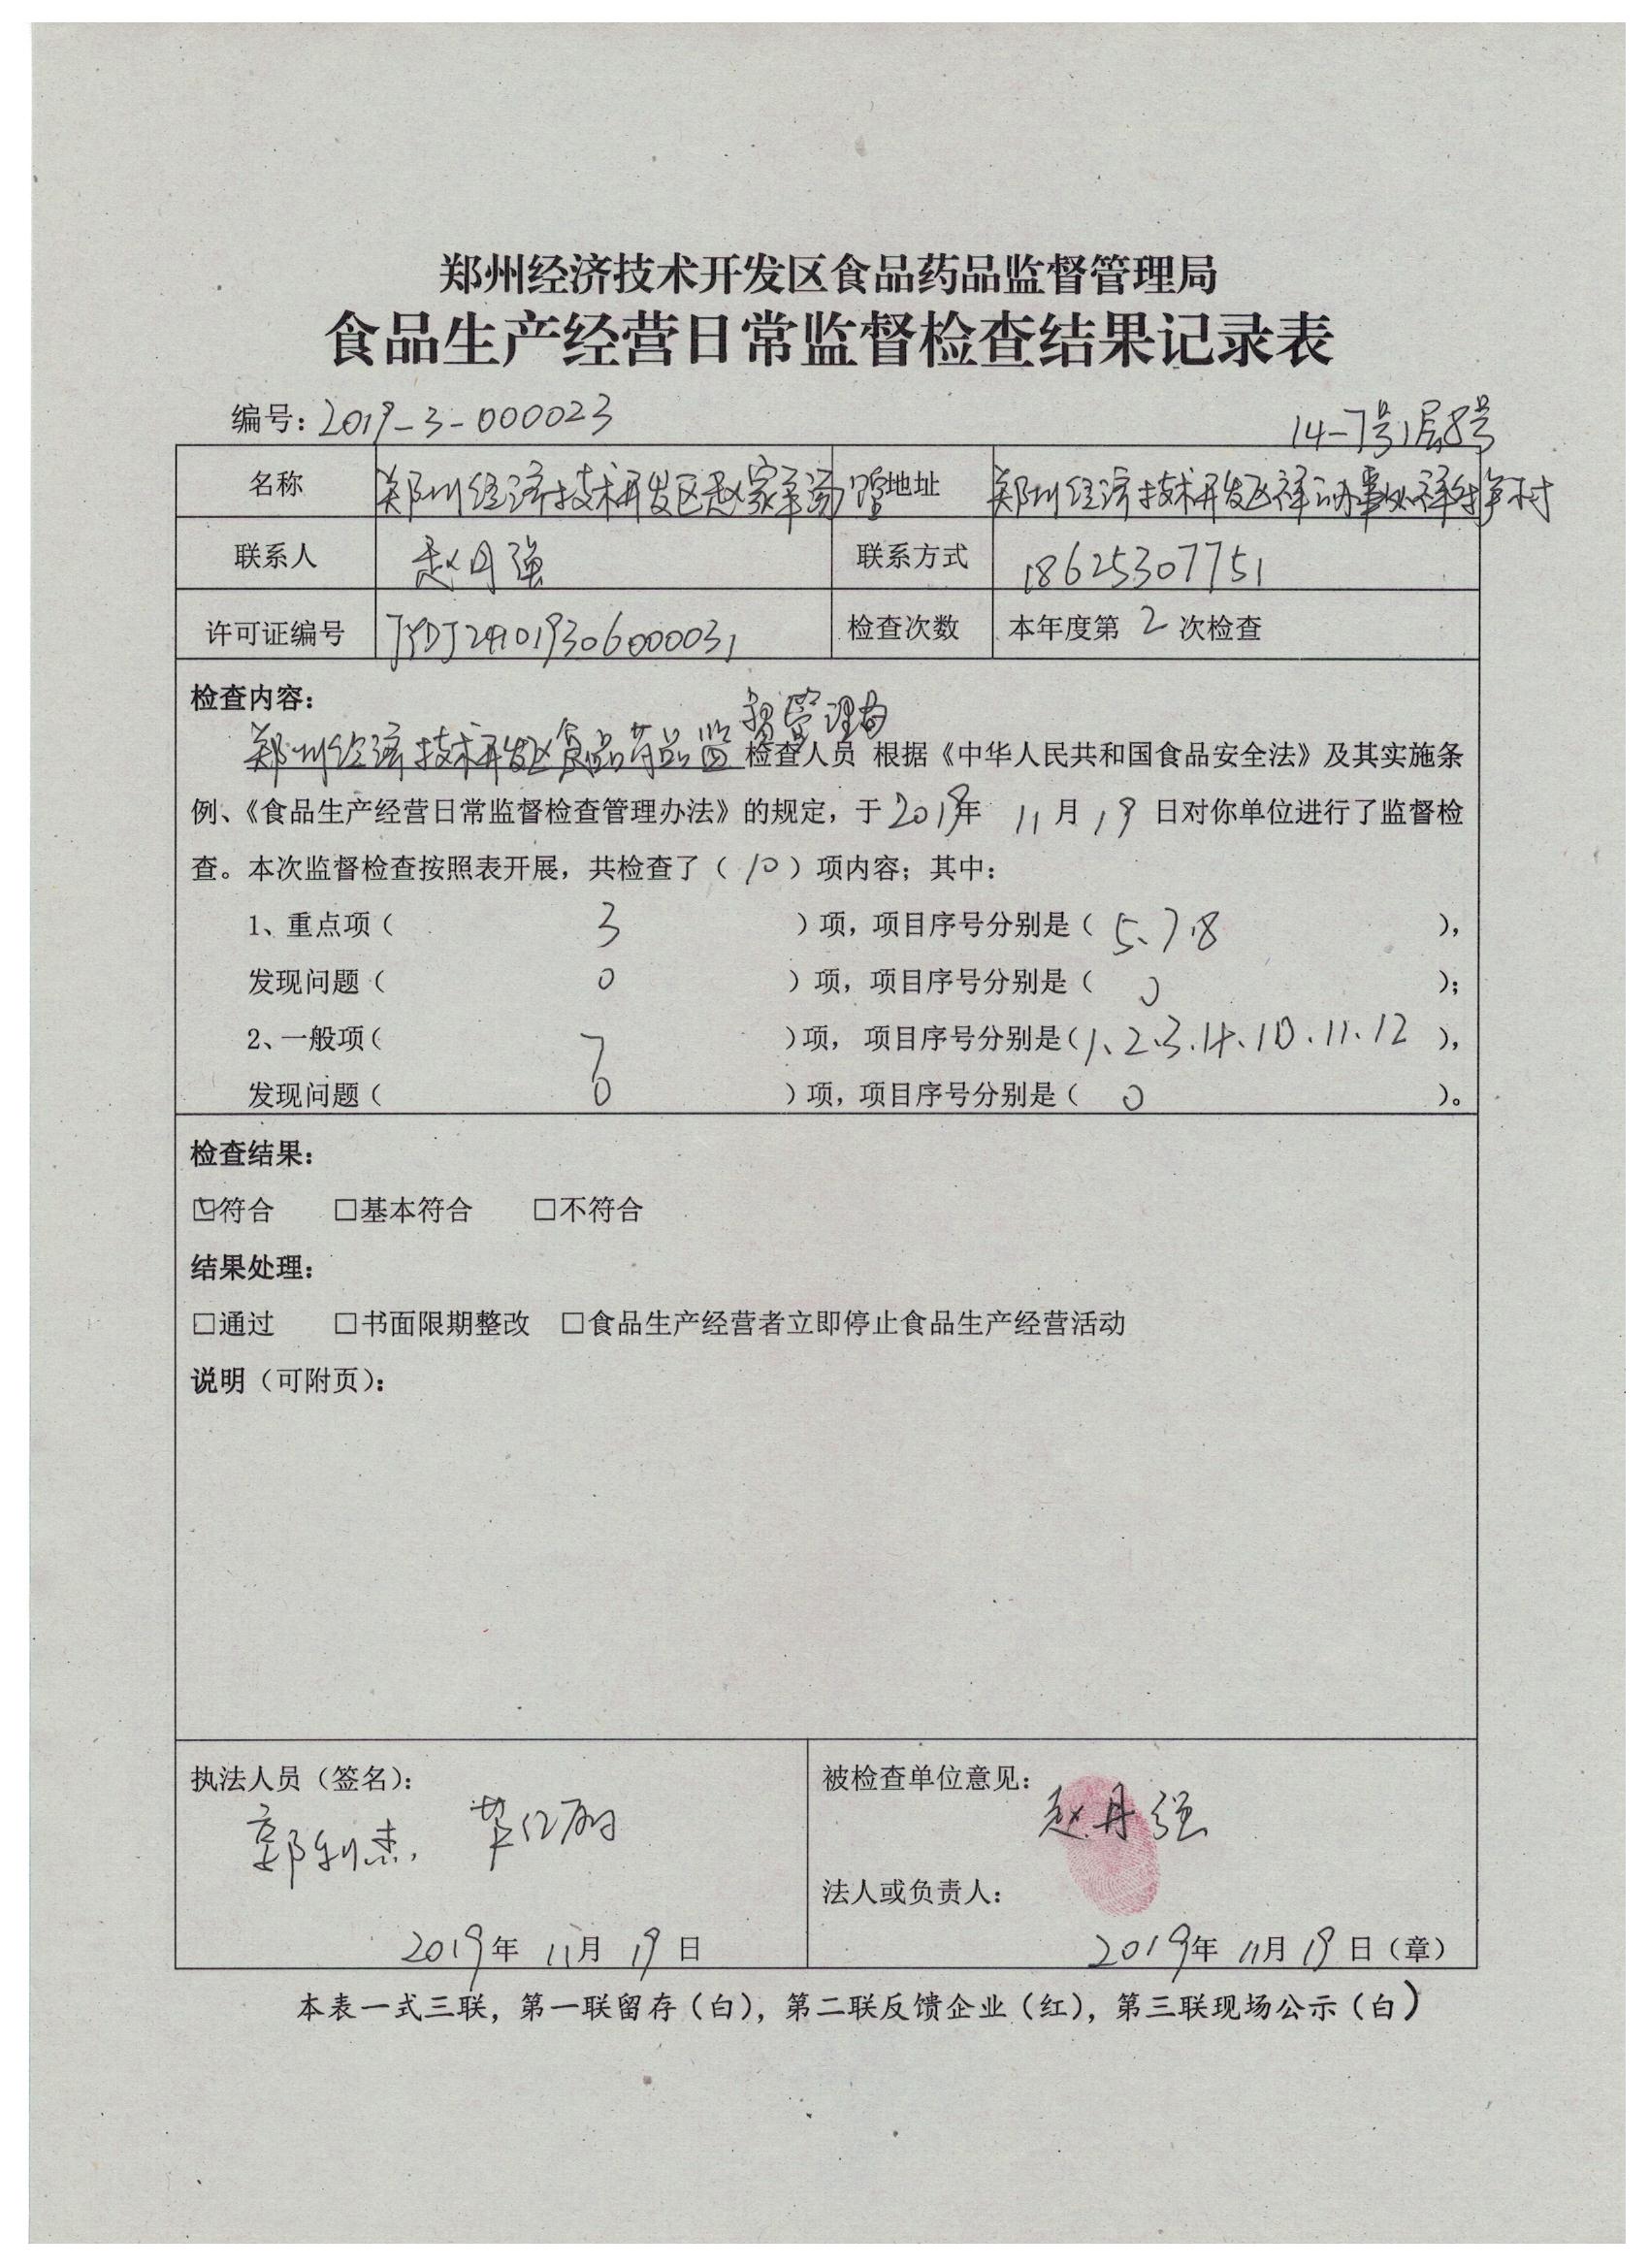 郑州经济技术开发区食品药品监督管理局
食品生产经营日常监督检查结果记录表
编号：2019-3-000023
14-7号1层8号
名称 郑州经济技术开发区赵家羊汤馆 地址 郑州经济技术开发区祥云办事处祥和村
联系人 赵丹强 联系方式 18625307751
许可证编号 JYDJ241019306000031 检查次数 本年度第 2 次检查
检查内容：
督管理局
郑州经济技术开发区食品药品监 检查人员 根据《中华人民共和国食品安全法》及其实施条
例、《食品生产经营日常监督检查管理办法》的规定，于 2019年 11 月 19 日对你单位进行了监督检
查。本次监督检查按照表开展，共检查了（ 10 ）项内容；其中：
1、重点项（ 3 ）项，项目序号分别是（ 5、7、8 ），
发现问题（ 0 ）项，项目序号分别是（ 0 ）；
2、一般项（ 7 ）项， 项目序号分别是（1、2、3、4、10、11、12 ），
发现问题（ 0 ）项，项目序号分别是（ 0 ）。
检查结果：
☑符合 □基本符合 □不符合
结果处理：
□通过 □书面限期整改 □食品生产经营者立即停止食品生产经营活动
说明（可附页）：
执法人员（签名）： 被检查单位意见：
郭利杰 赵丹强
法人或负责人：
2019年 11月 19 日 2019年 11月 19 日（章）
本表一式三联，第一联留存（白），第二联反馈企业（红），第三联现场公示（白）